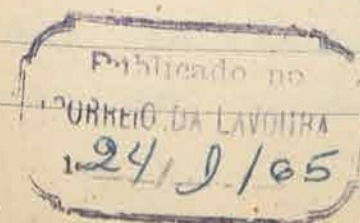 Publicado no
CORREIO DA LAVOURA
24/ /65